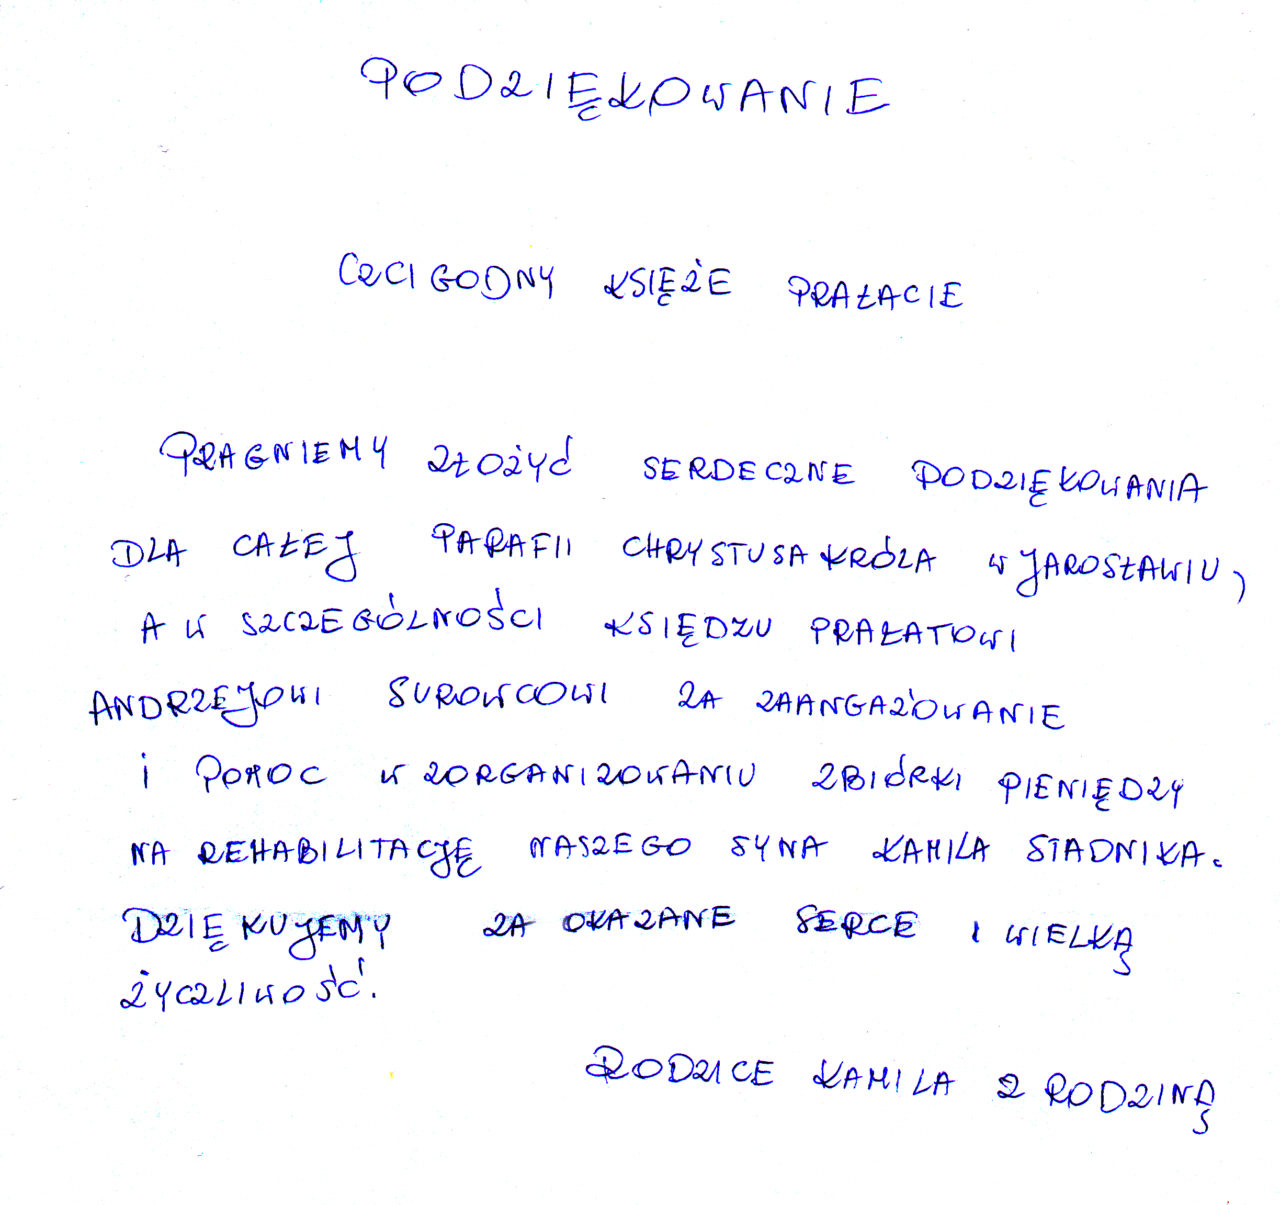 PODZIĘKOWANIE
CZCIGODNY KSIĘŻE PRAŁACIE
PRAGNIEMY ZŁOŻYĆ SERDECZNE PODZIĘKOWANIA
DLA CAŁEJ PARAFII CHRYSTUSA KRÓLA W JAROSŁAWIU,
A W SZCZEGÓLNOŚCI KSIĘDZU PRAŁATOWI
ANDRZEJOWI SUROWCOWI ZA ZAANGAŻOWANIE
I POMOC W ZORGANIZOWANIU ZBIÓRKI PIENIĘDZY
NA REHABILITACJĘ NASZEGO SYNA KAMILA STADNIKA.
DZIĘKUJEMY ZA OKAZANE SERCE I WIELKĄ
ŻYCZLIWOŚĆ.
RODZICE KAMILA Z RODZINĄ